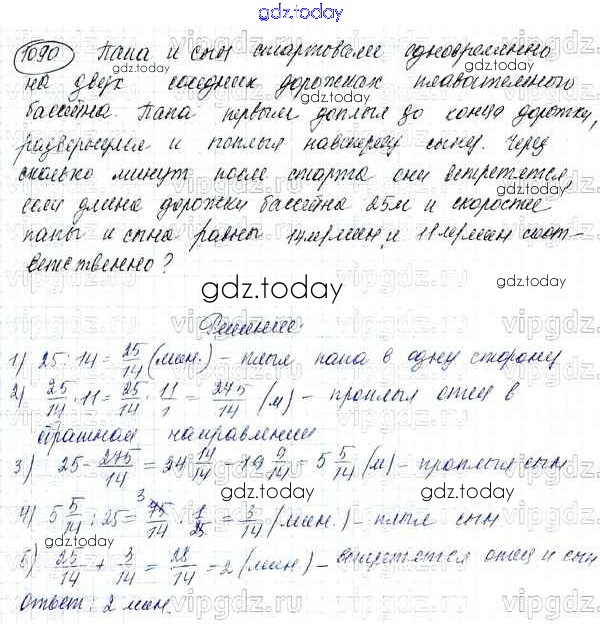 gdz.today
1090 Папа и сын стартовали одновременно
на двух соседних дорожках плавательного
бассейна. Папа первым доплыл до конца дорожки,
развернулся и поплыл навстречу сыну. Через
сколько минут после старта они встретятся,
если длина дорожки бассейна 25м и скорости
папы и сына равны 14м/мин и 11м/мин соот-
ветственно?
gdz.today
Решение.
1) 25 : 14 = 25/14 (мин.) - плыл папа в одну сторону
2) 25/14 · 11 = 25/14 · 11/1 = 275/14 (м) - проплыл отец в
направлении
3) 25 - 275/14 = 24 14/14 - 19 9/14 = 5 5/14 (м) - проплыл сын
4) 5 5/14 : 25 = 75/14 · 1/25 = 3/14 (мин.) - плыл сын
5) 25/14 + 3/14 = 28/14 = 2 (мин) - встретятся отец и сын
Ответ: 2 мин.